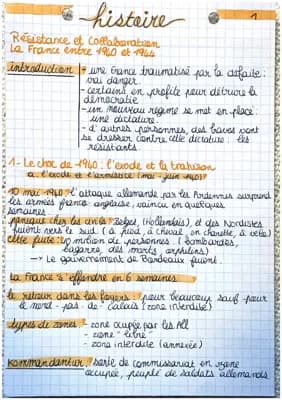 histoire
1
Résistance et Collaboration
La France entre 1940 et 1944
introduction
+ une France traumatisée par la défaite :
vrai danger.
- certains en profite pour détruire la
démocratie
- un nouveau régime se met en place :
une dictature.
- d'autres personnes, des braves vont
se dresser contre cette dictature : les
résistants
1- Le choc de 1940 : l'exode et la trahison
a. l'exode et l'armistice (mai - juin 1940)
10 mai 1940 : l'attaque allemande par les Ardennes surprend
les armées franco-anglaise, vaincu en quelques
semaines.
panique chez les civils : Belges, (Hollandais), et des Nordistes
fuient vers le sud. (à pied, à cheval, en charette, à vélo)
cette fuite : 10 million de personnes. (bombardés,
bagarre, des morts, orphelins)
→ Le gouvernement de Bordeaux fuient.
La France s'effondre en 6 semaines
le retour dans les foyers : pour beaucoup sauf pour
le nord - pas - de - Calais (zone interdite)
types de zones : - zone ocupée par les All
- zone "libre"
- zone interdite (annexée)
Kommandantur : serie de commissariat en zone
occupée, peuplé de soldats allemands.